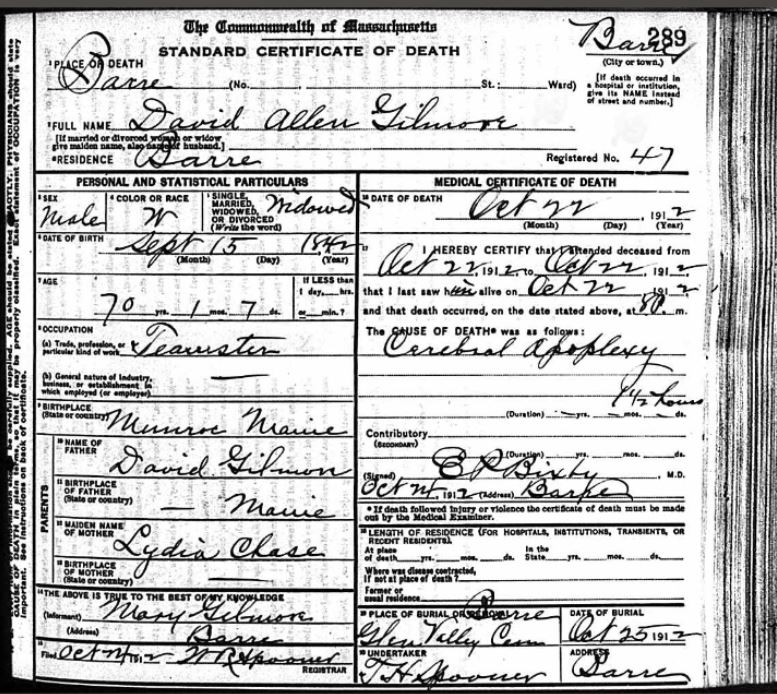 The Commonwealth of Massachusetts
STANDARD CERTIFICATE OF DEATH
289
Barre
(City or town.)
1 PLACE OF DEATH
Barre (No. St.: Ward)
[If death occurred in a hospital or institution, give its NAME instead of street and number.]
2 FULL NAME David Allen Gilmore
[If married or divorced woman or widow give maiden name, also name of husband.]
RESIDENCE Barre
Registered No. 47
PERSONAL AND STATISTICAL PARTICULARS
3 SEX Male
4 COLOR OR RACE W
5 SINGLE, MARRIED, WIDOWED, OR DIVORCED (Write the word) Widowed
6 DATE OF BIRTH Sept 15 1842
(Month) (Day) (Year)
7 AGE
70 yrs. 1 mos. 7 ds.
If LESS than 1 day, hrs. or min.?
8 OCCUPATION
(a) Trade, profession, or particular kind of work Teamster
(b) General nature of industry, business, or establishment in which employed (or employer)
9 BIRTHPLACE
(State or country) Munroe Maine
PARENTS
10 NAME OF FATHER David Gilmore
11 BIRTHPLACE OF FATHER (State or country) — Maine
12 MAIDEN NAME OF MOTHER Lydia Chase
13 BIRTHPLACE OF MOTHER (State or country) —
14 THE ABOVE IS TRUE TO THE BEST OF MY KNOWLEDGE
(Informant) Mary Gilmore
(Address) Barre
15 Filed Oct 24 1912 W R Spooner
REGISTRAR
MEDICAL CERTIFICATE OF DEATH
16 DATE OF DEATH Oct 22, 1912
(Month) (Day) (Year)
17 I HEREBY CERTIFY that I attended deceased from
Oct 22, 1912 to Oct 22 1912
that I last saw him alive on Oct 22 1912
and that death occurred, on the date stated above, at 8 P. m.
The CAUSE OF DEATH* was as follows:
Cerebral Apoplexy
1 1/2 hours
(Duration) yrs. mos. ds.
Contributory
(SECONDARY)
(Duration) yrs. mos. ds.
(Signed) E P Bixby M.D.
Oct 24, 1912 (Address) Barre
* If death followed injury or violence the certificate of death must be made out by the Medical Examiner.
18 LENGTH OF RESIDENCE (FOR HOSPITALS, INSTITUTIONS, TRANSIENTS, OR RECENT RESIDENTS).
At place of death yrs. mos. ds. In the State yrs. mos. ds.
Where was disease contracted, if not at place of death?
Former or usual residence
19 PLACE OF BURIAL OR REMOVAL Barre
Glen Valley Cem
DATE OF BURIAL
Oct 25 1912
20 UNDERTAKER
T H Spooner
ADDRESS
Barre